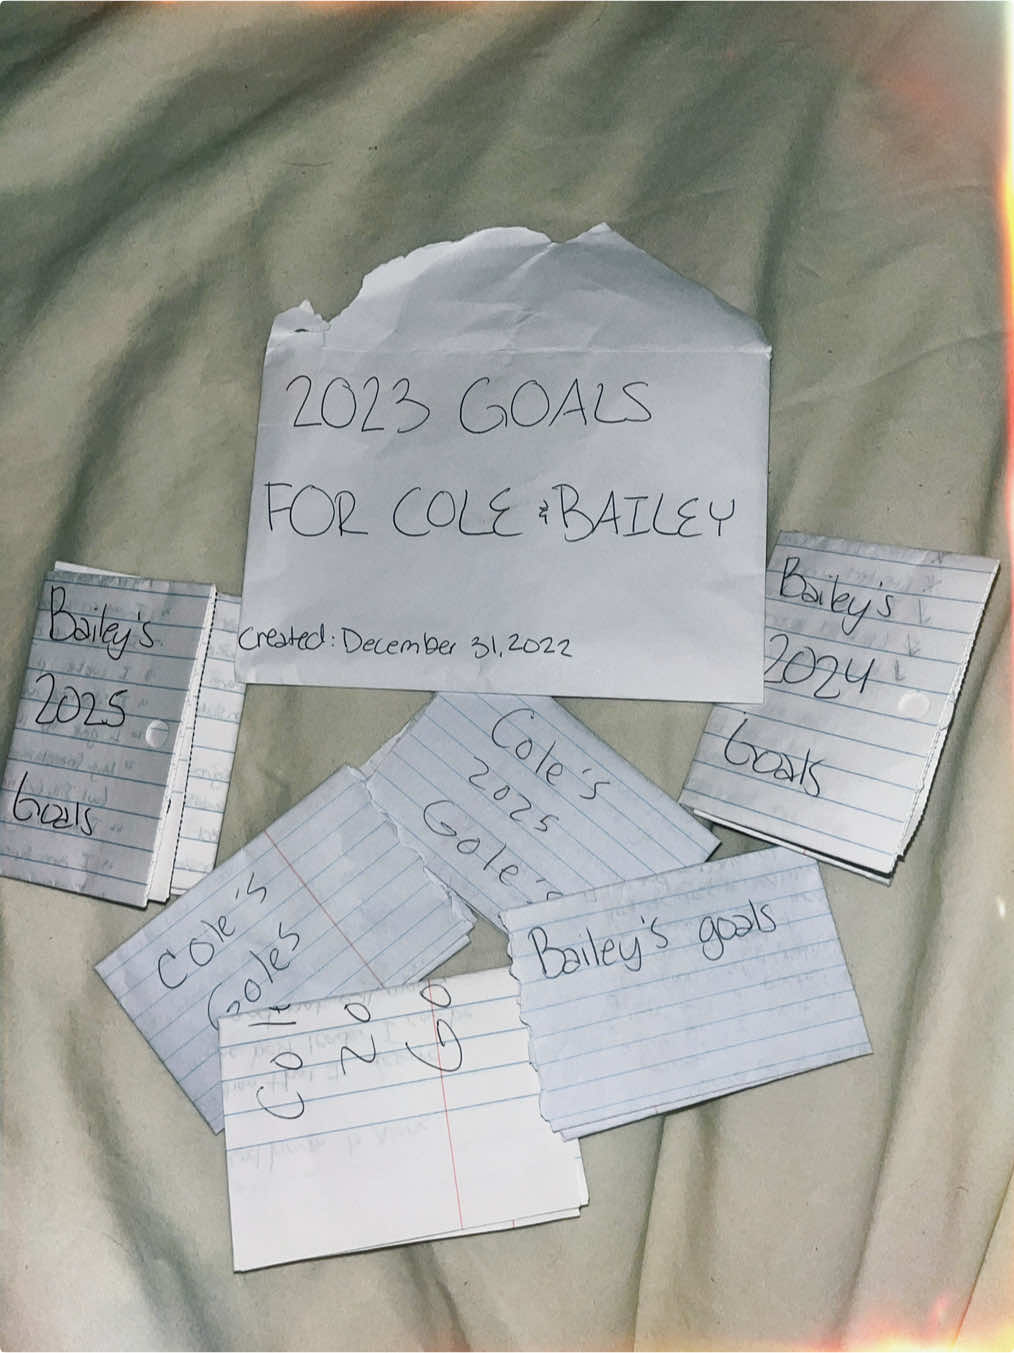 2023 GOALS
FOR COLE & BAILEY
Created: December 31, 2022
Bailey's
2025
Goals
Bailey's
2024
Goals
Cole's
2025
Gole's
Cole's
Goles
Bailey's goals